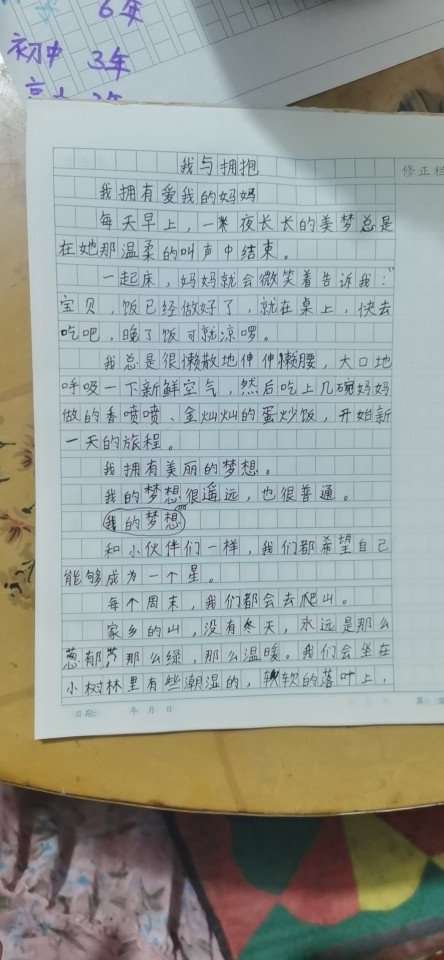 6年
初中 3年
我与拥抱
修正栏
我拥有爱我的妈妈
每天早上，一米夜长长的美梦总是
在她那温柔的叫声中结束。
一起床，妈妈就会微笑着告诉我："
宝贝，饭已经做好了，就在桌上，快去
吃吧，晚了饭可就凉啰。
我总是很懒散地伸伸懒腰，大口地
呼吸一下新鲜空气，然后吃上几碗妈妈
做的香喷喷、金灿灿的蛋炒饭，开始新
一天的旅程。
我拥有美丽的梦想。
我的梦想很遥远，也很普通。
我的梦想
和小伙伴们一样，我们都希望自己
能够成为一个星。
每个周末，我们都会去爬山。
家乡的山，没有冬天，永远是那么
葱郁，那么绿，那么温暖。我们会坐在
小树林里有些潮湿的，软软的落叶上，
日期： 年 月 日
第